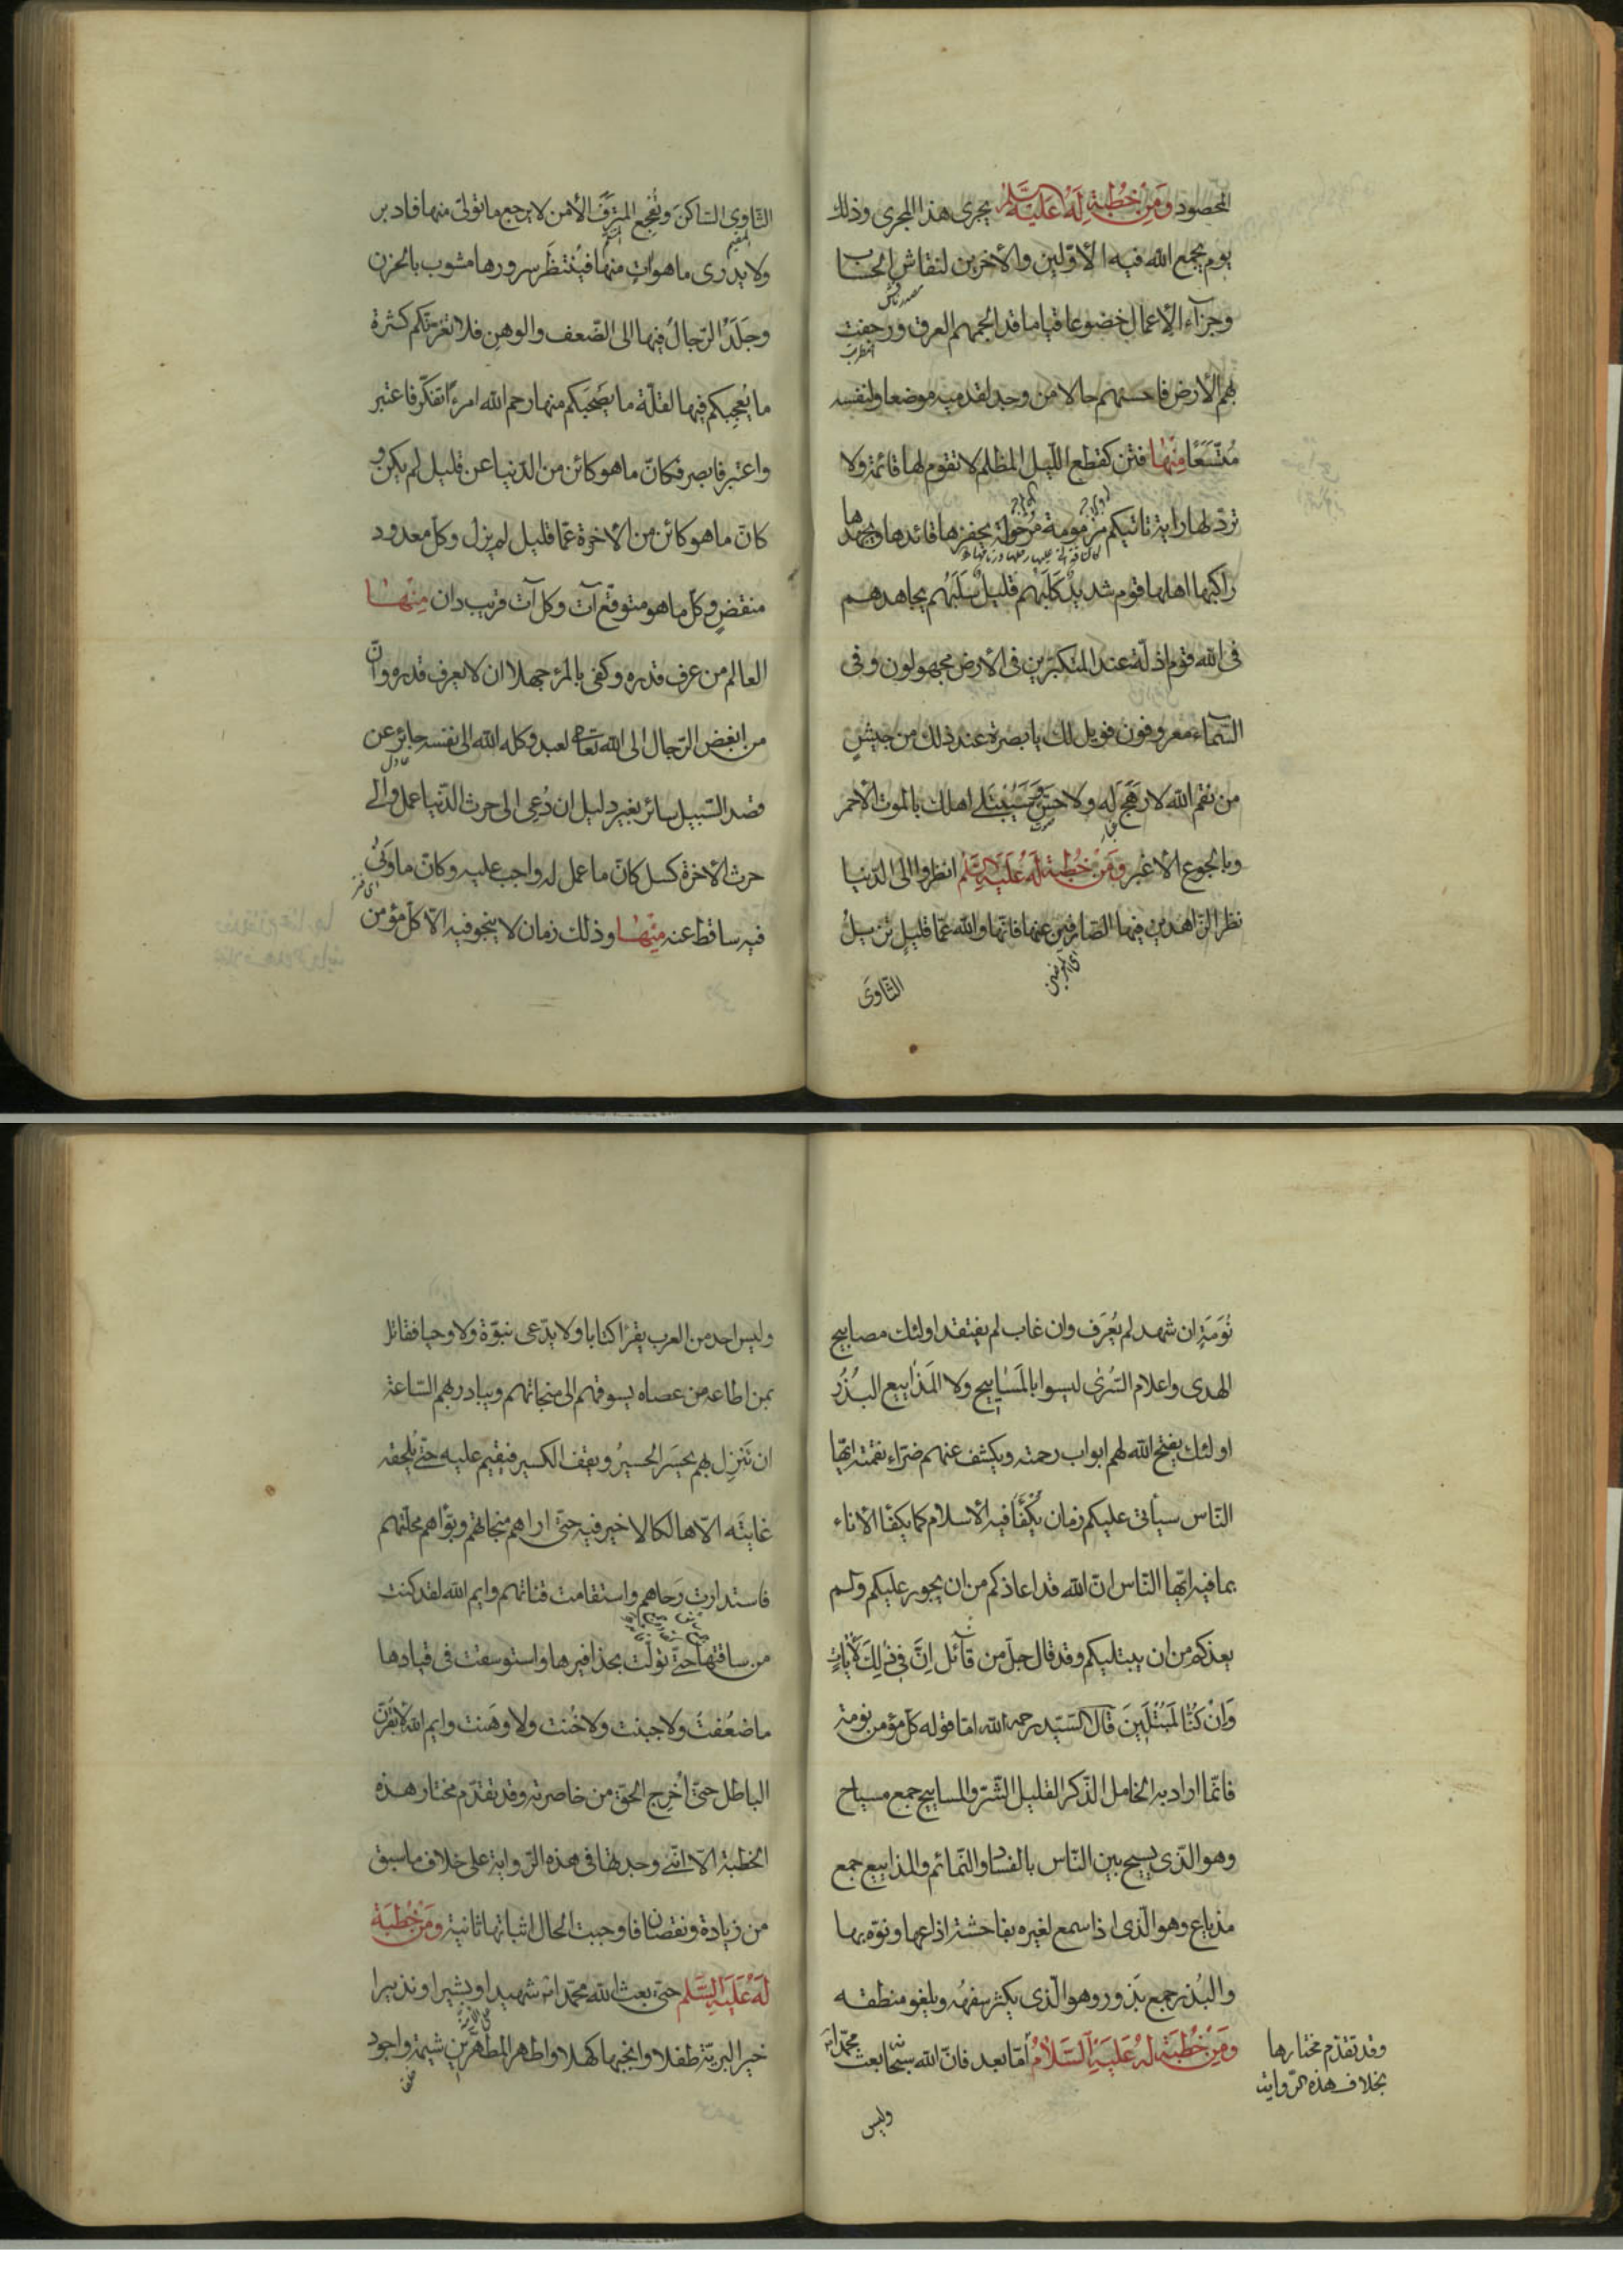 المحصود ومن خطبة له عليه السلم يجرى هذا المجرى وذلك
يوم يجمع الله فيه الأوّلين والأخرين لنقاش الحساب
وجزاء الأعمال خضوعا قياما قد الجمهم العرق ورجفت
اضطربت
بهم الأرض فاحسنهم حالا من وجد لقدميه موضعا ولنفسه
مُتّسَعًا منها فتن كقطع اللّيل المظلم لا تقوم لها قائمة ولا
تردّ لها راية تاتيكم مزمومة مرحولة يحفزها قائدها ويجهدها
راكبها اهلها قوم شديد كَلَبُهم قليل سَلَبُهم يجاهدهم
فى الله قوم اذلّة عند المتكبّرين فى الأرض مجهولون وفى
السّماء معروفون فويل لك يا بصرة عند ذلك من جيشٍ
من نقم الله لا رهَج له ولا حسّ وسيُبتلى اهلك بالموت الأحمر
وبالجوع الأغبر ومن خطبة له عليه السلم انظروا الى الدّنيا
نظر الزّاهدين فيها الصّادفين عنها فانّها والله عمّا قليلٍ تزيلُ
اى المعرضين
الثّاوى
الثّاوى السّاكن وتُفجِع المترَف الأمن لا يرجع ما تولّى منها فادبر
المقيم
ولا يدرى ما هو اتٍ منها فيُنتظَر سرورها مشوب بالحزن
وجَلَدُ الرّجالُ فيها الى الضّعف والوهن فلا تغرّنّكم كثرة
ما يُعجبكم فيها لقلّة ما يصَحَبكم منها رحم الله امرءًا تفكّر فاعتبر
واعتبر فابصر فكانّ ما هو كائن من الدّنيا عن قليل لم يكن و
كانّ ما هو كائن من الأخرة عمّا قليل لم يزل وكلّ معدود
منقضٍ وكلّ ما هو متوقّع آت وكلّ آت قريب دان منها
العالم من عرف قدره وكفى بالمرء جهلا ان لا يعرف قدره وانّ
من ابغض الرّجال الى الله تعالى لعبد وكله الله الى نفسه جائر عن
عادل
قصد السّبيل سائر بغير دليل ان دُعِى الى حرث الدّنيا عمل والى
حرث الأخرة كسل كانّ ما عمل له واجب عليه وكانّ ما ونَى
اى فتر
فيه ساقط عنه منها وذلك زمان لا ينجو فيه الّا كلّ مؤمن
نُوَمَةٍ ان شهد لم يُعرَف وان غاب لم يفتقد اولئك مصابيح
الهدى واعلام السُّرى ليسوا بالمَسَاييح ولا المَذاييع البُذُر
اولئك يفتح الله لهم ابواب رحمته ويكشف عنهم ضرّاء نقمته ايّها
النّاس سيأتى عليكم زمان يُكفَأ فيه الأسلام كما يكفأ الأناء
بما فيه ايّها النّاس انّ الله قد اعاذكم من ان يجور عليكم ولم
يعذكم من ان يبتليكم وقد قال جلّ من قآئل اِنَّ فِى ذٰلِكَ لَأٰيَاتٍ
وَاِنْ كُنَّا لَمُبْتَلِينَ قال السيّد رحمه الله امّا قوله كلّ مؤمن نومة
فانّما اراد به الخامل الذّكر القليل الشّرّ والمساييح جمع مسياح
وهو الّذى يسيح بين النّاس بالفساد والنّمائم والمذاييع جمع
مذياع وهو الّذى اذا سمع لغيره بفاحشة اذاعها ونوّه بها
والبُذر جمع بَذور وهو الّذى يكثر سفهُه ويلغو منطقه
ومن خُطبَة له عَليَهِ السَّلامُ أمّا بعد فانّ الله سبحانه بعث محمّدا
وقد تقدّم مختارها
بخلاف هذه الرّواية
وليس
وليس احد من العرب يقرأ كتابا ولا يدّعى نبوّة ولا وحيا فقاتل
بمن اطاعه من عصاه يسوقهم الى منجاتهم ويبادر بهم السّاعة
ان تَنزِل بهم يحسَر الحسيرُ ويقف الكسير فيقيم عليه حتّى يُلحقه
غايتَه الّا هالكا لا خير فيه حتّى اراهم منجاتهم وبوّاهم محلّتهم
فاستدارت رَحاهم واستقامت قناتهم وايم الله لقد كنت
من ساقتها حتّى تولّت بحذافيرها واستوسقت فى قيادها
ما ضعُفتُ ولا جبنت ولا خُنت ولا وهَنت وايم الله لأبقرنّ
الباطل حتّى أخرِج الحقّ من خاصرته وقد تقدّم مختار هذه
الخطبة الّا انّنى وجدتها فى هذه الرّواية على خلاف ما سبق
من زيادة ونقصان فاوجبت الحال اثباتها ثانية ومن خُطبَة
لَهُ عَلَيَهِ السَّلم حتّى بعث الله محمّدا شهيدا وبشيرا ونذيرا
خير البريّة طفلا وانجبها كهلا واطهر المطهّرين شيمة واجود